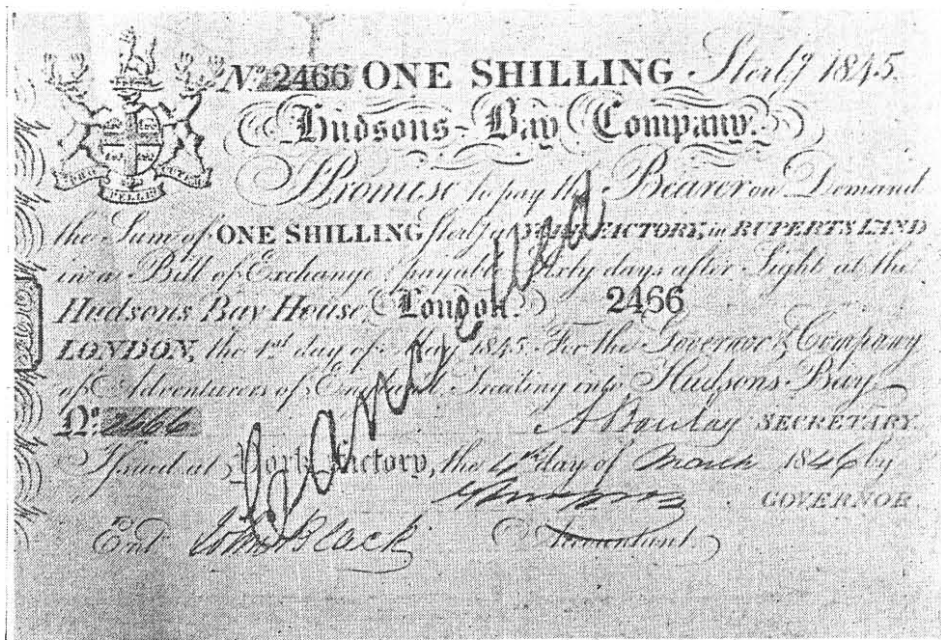 Nº 2466 ONE SHILLING Sterlg 1845.
Hudsons-Bay Company.
PRO PELLE CUTEM
I Promise to pay the Bearer on Demand
the Sum of ONE SHILLING Sterlg at YORK FACTORY, in RUPERTS LAND
in a Bill of Exchange payable Sixty days after Sight at the
Hudsons Bay House, London. 2466
LONDON, the 1st day of May 1845. For the Governor & Company
of Adventurers of England Trading into Hudsons Bay
Nº 2466 A Barclay SECRETARY.
Issued at York Factory, the 4th day of March 1846 by
GOVERNOR.
Ent John Black Accountant
Cancelled